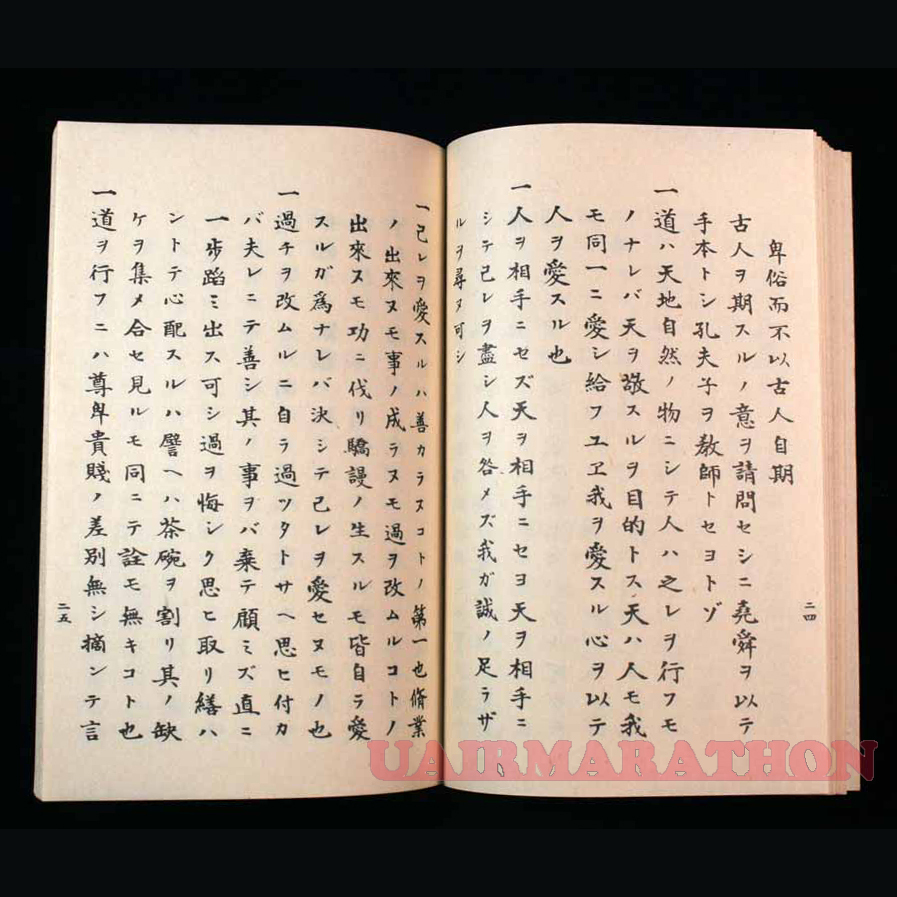 卑俗而不以古人自期
古人ヲ期スルノ意ヲ請問セシニ堯舜ヲ以テ
手本トシ孔夫子ヲ教師トセヨトゾ
一道ハ天地自然ノ物ニシテ人ハ之レヲ行フモ
ノナレバ天ヲ敬スルヲ目的トス天ハ人モ我
モ同一ニ愛シ給フユヱ我ヲ愛スル心ヲ以テ
人ヲ愛スル也
一人ヲ相手ニセズ天ヲ相手ニセヨ天ヲ相手ニ
シテ己レヲ盡シ人ヲ咎メズ我ガ誠ノ足ラザ
ルヲ尋ヌ可シ
二四
一己レヲ愛スルハ善カラヌコトノ第一也脩業
ノ出來ヌモ事ノ成ラヌモ過ヲ改ムルコトノ
出來ヌモ功ニ伐リ驕謾ノ生スルモ皆自ラ愛
スルガ爲ナレバ決シテ己レヲ愛セヌモノ也
一過チヲ改ムルニ自ラ過ツタトサヘ思ヒ付カ
バ夫レニテ善シ其ノ事ヲバ棄テ顧ミズ直ニ
一步蹈ミ出ス可シ過ヲ悔シク思ヒ取リ繕ハ
ントテ心配スルハ譬ヘハ茶碗ヲ割リ其ノ缺
ケヲ集メ合セ見ルモ同ニテ詮モ無キコト也
一道ヲ行フニハ尊卑貴賤ノ差別無シ摘ンテ言
二五
UAIRMARATHON